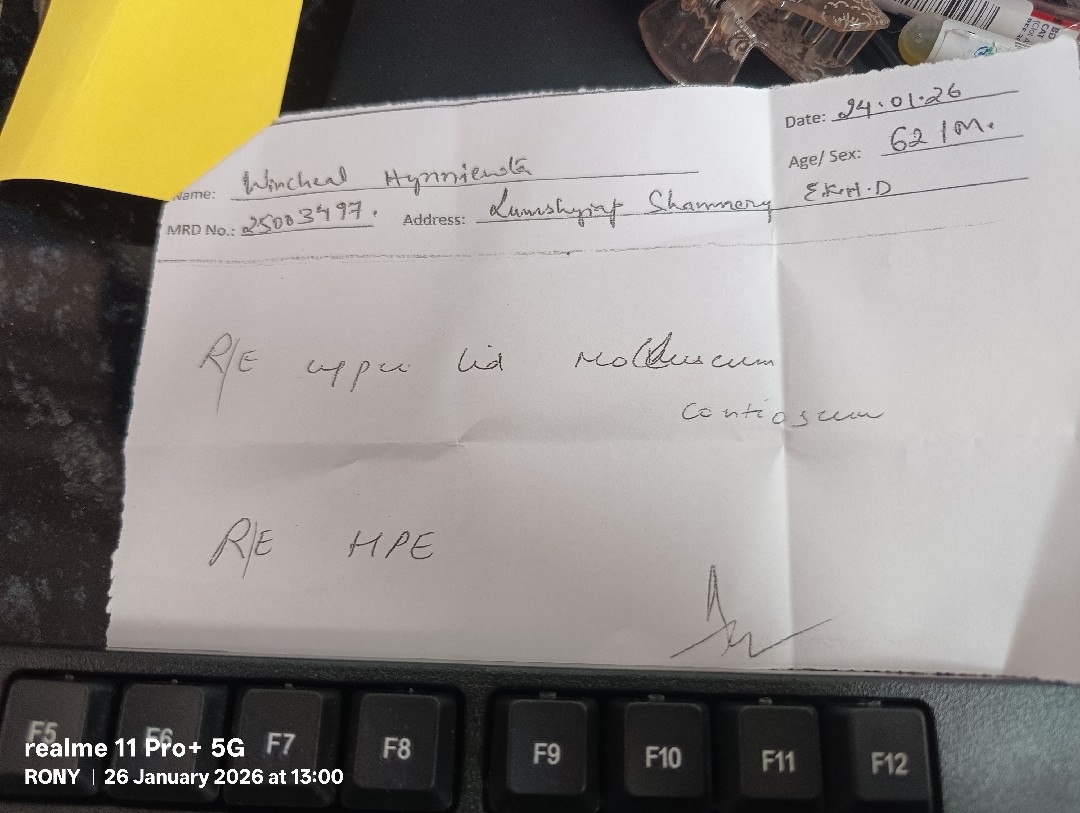 Date: 24.01.26
Age/ Sex: 62 / M.
Name: Wincheal Hynniewta
MRD No.: 25003497. Address: Lumshyiap Shammery E.K.H.D
R/E upper lid Molluscum
contioscum
R/E HPE
F5 F6 F7 F8 F9 F10 F11 F12
realme 11 Pro+ 5G
RONY | 26 January 2026 at 13:00